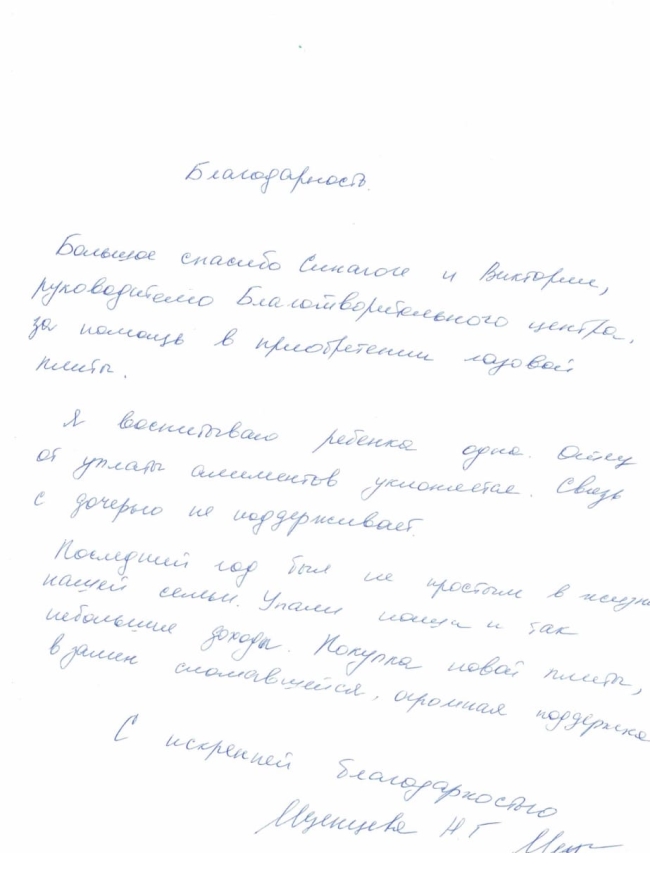 Благодарность.
Большое спасибо Синагоге и Виктории,
руководителю Благотворительного центра,
за помощь в приобретении газовой
плиты.
Я воспитываю ребенка одна. Отец
от уплаты алиментов уклоняется. Связь
с дочерью не поддерживает.
Последний год был не простым в жизни
нашей семьи. Упали наши и так
небольшие доходы. Покупка новой плиты,
в замен сломавшейся, огромная поддержка
С искренней благодарностью
Мценцева Н Г